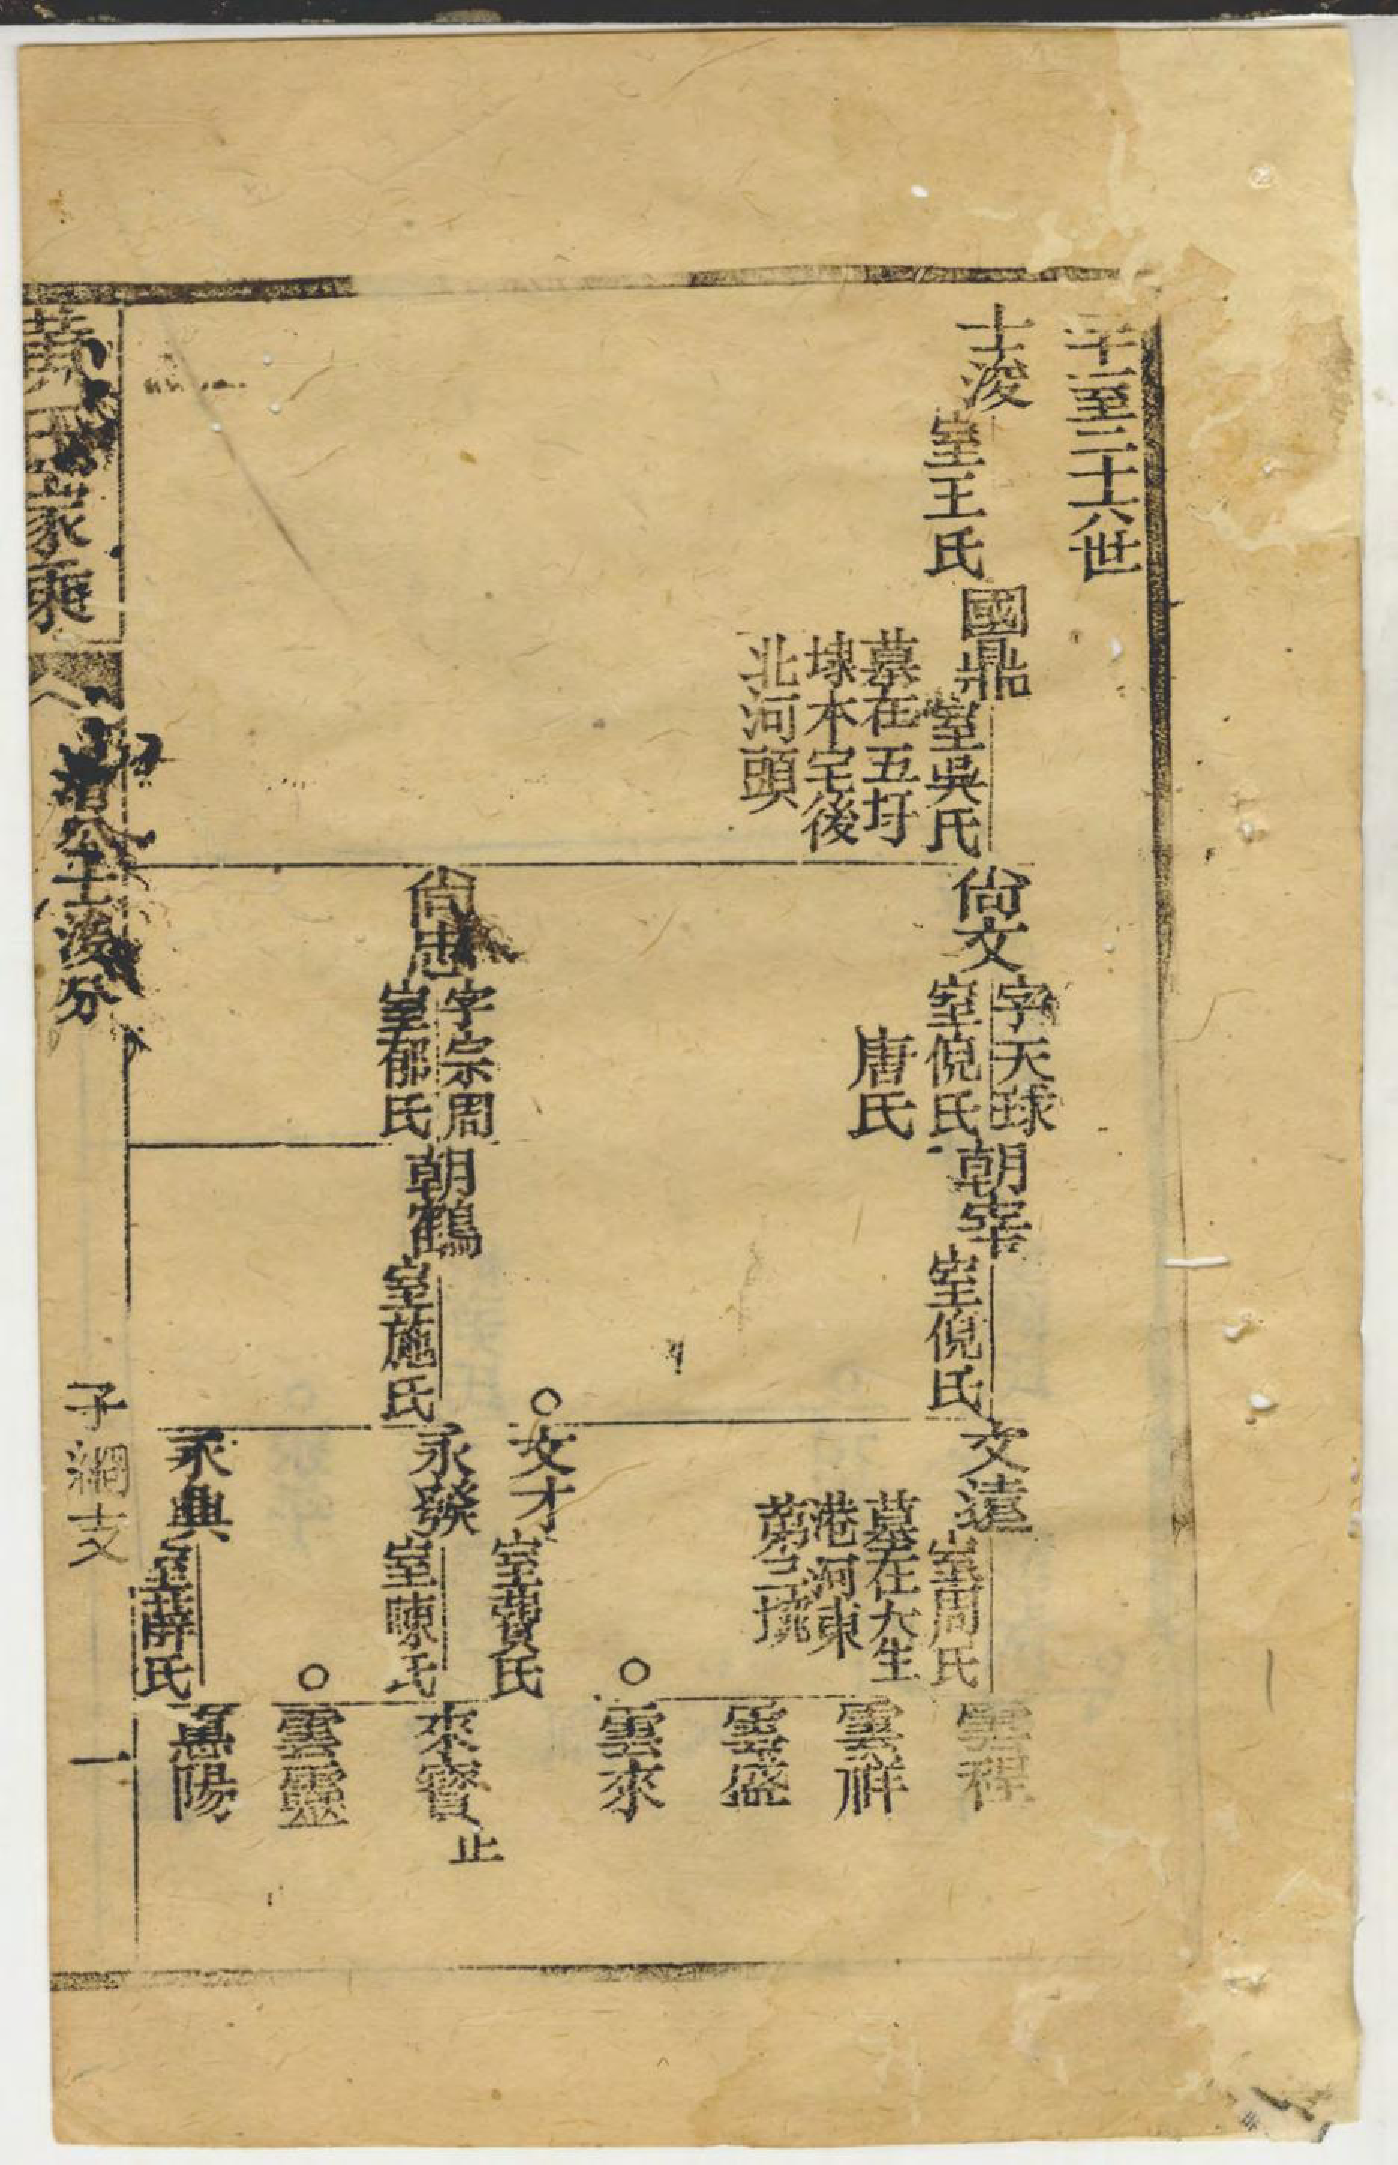 二十一至二十六世
士浚
室王氏
國鼎
室吳氏
墓在五圩
埭本宅後
北河頭
尙文
字天球
室倪氏
唐氏
朝宰
室倪氏
文遠
室周氏
墓在大生
港河東
第三㧡
雲程
雲祥
雲盛
雲來
文才
室費氏
尙忠
字宗周
室郁氏
朝鶴
室施氏
永發
室陳氏
來寶
止
雲靈
永興
室薛氏
惪陽
黃氏家乘
公士浚分
子綱支
一